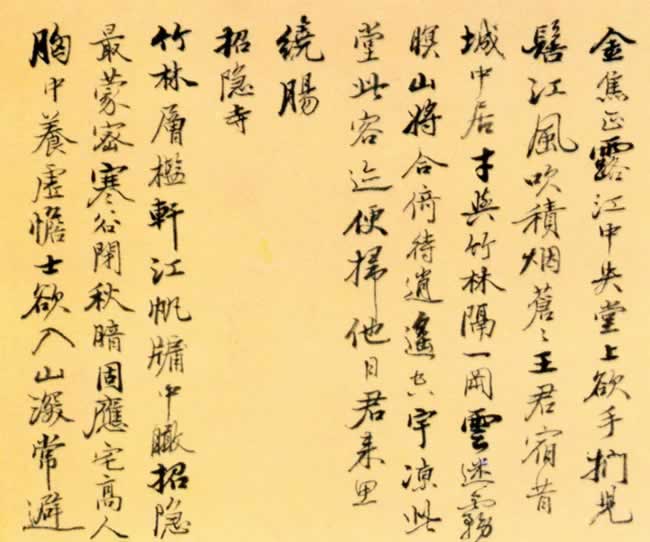 金焦正露江中央堂上欲手捫兒
鬟江風吹積烟蒼〻王君宿昔
城中居才與竹林隔一岡雲迷霧
暝山將合倚待逍遙六宇凉此
堂此容迄便掃他日君来里
繞腸
招隐寺
竹林層檻軒江帆牖中瞰招隐
最蒙密寒谷閉秋暗固應宅高人
胸中養虚憺士欲入山深常避